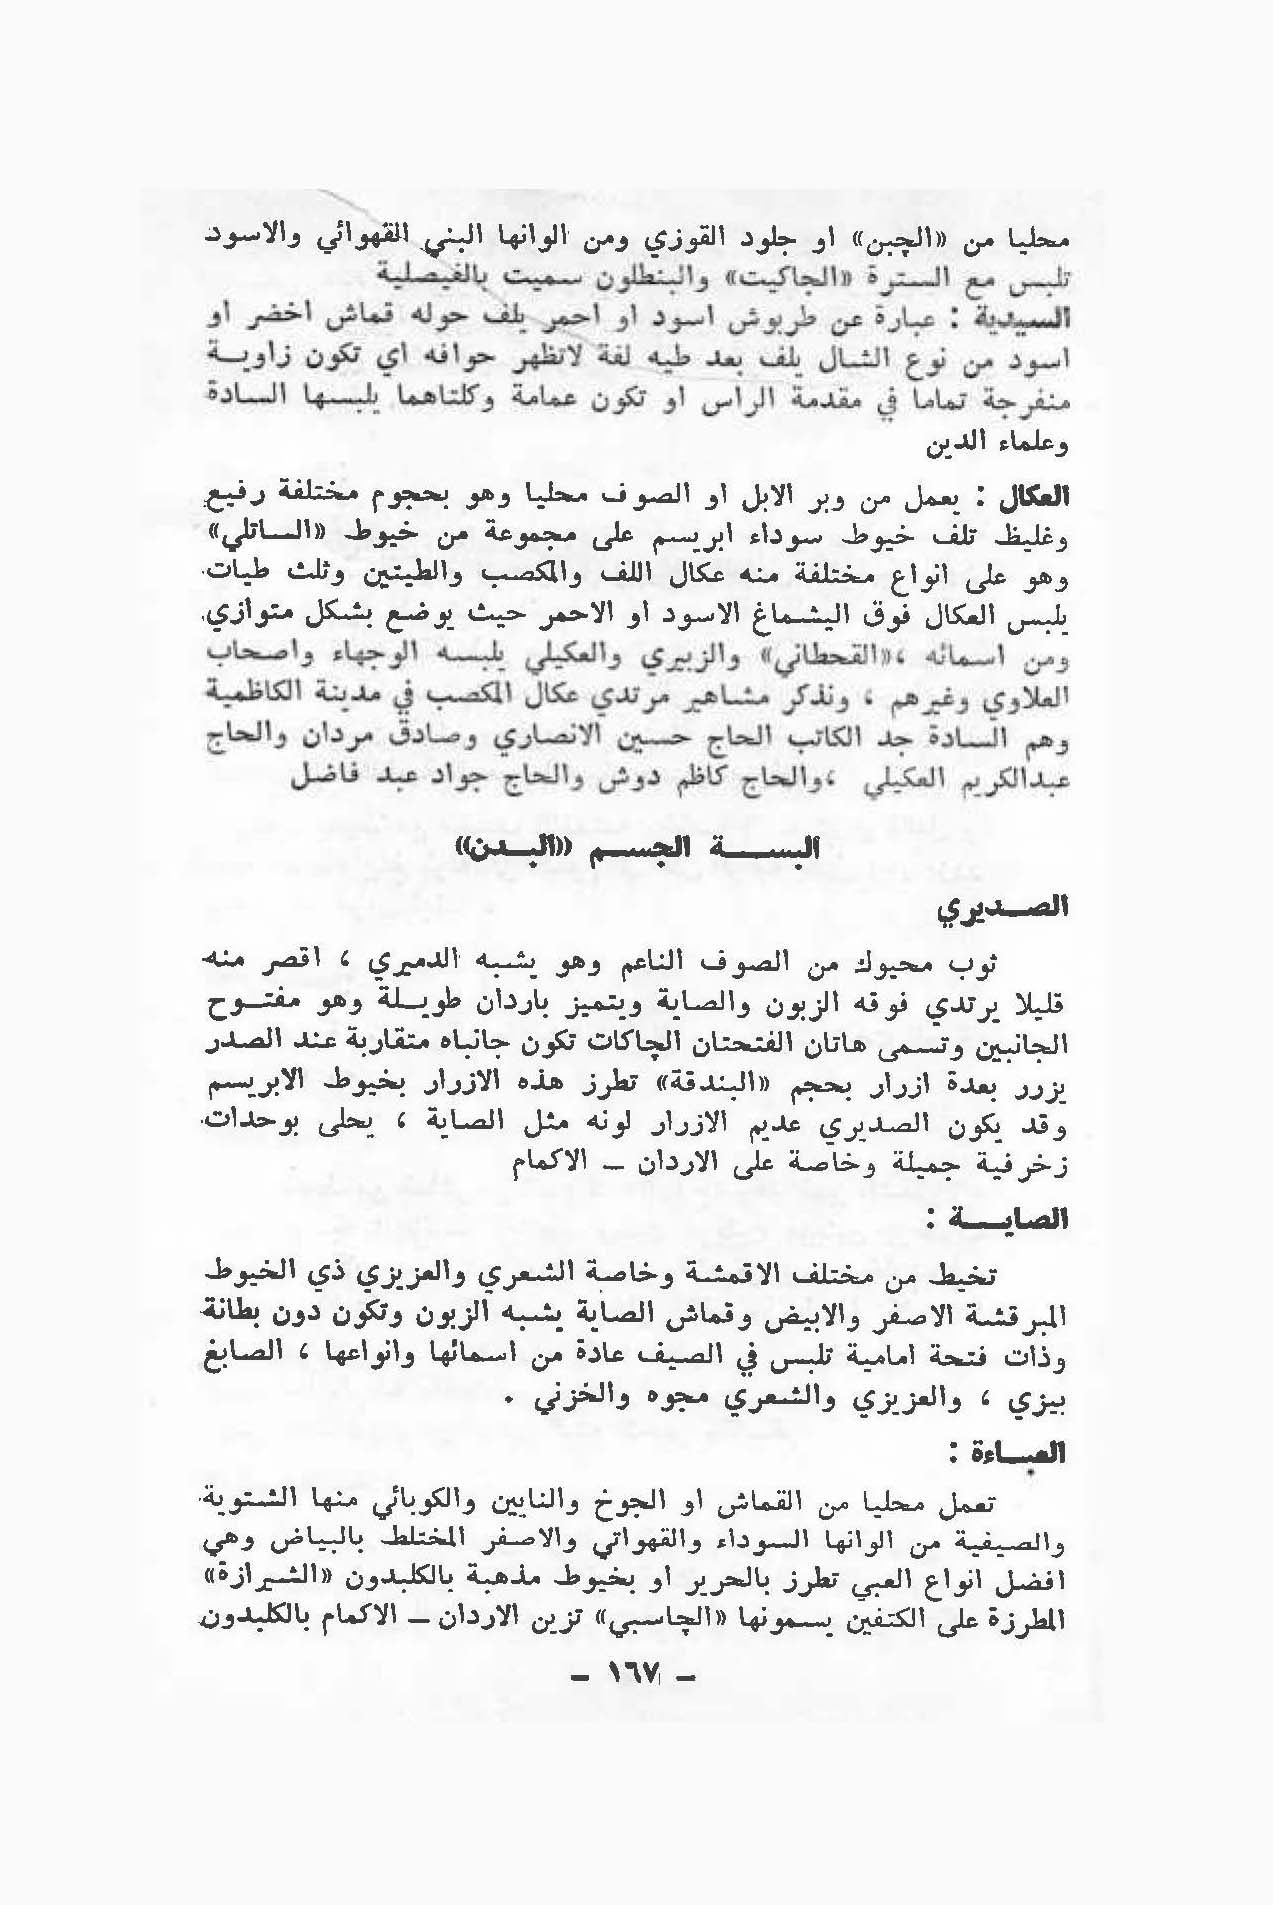 محليا من «الچبن» او جلود القوزي ومن الوانها البني القهوائي والاسود
تلبس مع السترة «الجاكيت» والبنطلون سميت بالفيصلية
السيدية : عبارة عن طربوش اسود او احمر يلف حوله قماش اخضر او
اسود من نوع الشال يلف بعد طيه لفة لاتظهر حوافه اي تكون زاويـة
منفرجة تماما في مقدمة الراس او تكون عمامة وكلتاهما يلبسها السادة
وعلماء الدين
العكال : يعمل من وبر الابل او الصوف محليا وهو بحجوم مختلفة رفيع
وغليظ تلف خيوط سوداء ابريسم على مجموعة من خيوط «الساتلي»
وهو على انواع مختلفة منه عكال اللف والمكصب والطيتين وثلث طيات
يلبس العكال فوق اليشماغ الاسود او الاحمر حيث يوضع بشكل متوازي
ومن اسمائه ،«القحطاني» والزبيري والعكيلي يلبسه الوجهاء واصحاب
العلاوي وغيرهم ، ونذكر مشاهير مرتدي عكال المكصب في مدينة الكاظمية
وهم السادة جد الكاتب الحاج حسين الانصاري وصادق مردان والحاج
عبدالكريم العكيلي ،والحاج كاظم دوش والحاج جواد عبد فاضل
البســـة الجســم «البـدن»
الصـديري
ثوب محيوك من الصوف الناعم وهو يشبه الدميري ، اقصر منه
قليلا يرتدي فوقه الزبون والصاية ويتميز باردان طويـلة وهو مفتـوح
الجانبين وتسمى هاتان الفتحتان الچاكات تكون جانباه متقاربة عند الصدر
يزرر بعدة ازرار بحجم «البندقة» تطرز هذه الازرار بخيوط الابريسم
وقد يكون الصديري عديم الازرار لونه مثل الصاية ، يحلى بوحدات
زخرفية جميلة وخاصة على الاردان – الاكمام
الصايـــة :
تخيط من مختلف الاقمشة وخاصة الشعري والعزيزي ذي الخيوط
المبرقشة الاصفر والابيض وقماش الصاية يشبه الزبون وتكون دون بطانة
وذات فتحة امامية تلبس في الصيف عادة من اسمائها وانواعها ، الصابغ
بيزي ، والعزيزي والشعري مجوه والخزني .
العبـاءة :
تعمل محليا من القماش او الجوخ والنايين والكوبائي منها الشتوية
والصيفية من الوانها السوداء والقهواتي والاصفر المختلط بالبياض وهي
افضل انواع العبي تطرز بالحرير او بخيوط مذهبة بالكلبدون «الشيرازة»
المطرزة على الكتفين يسمونها «الچاسبي» تزين الاردان – الاكمام بالكلبدون
– ١٦٧ –